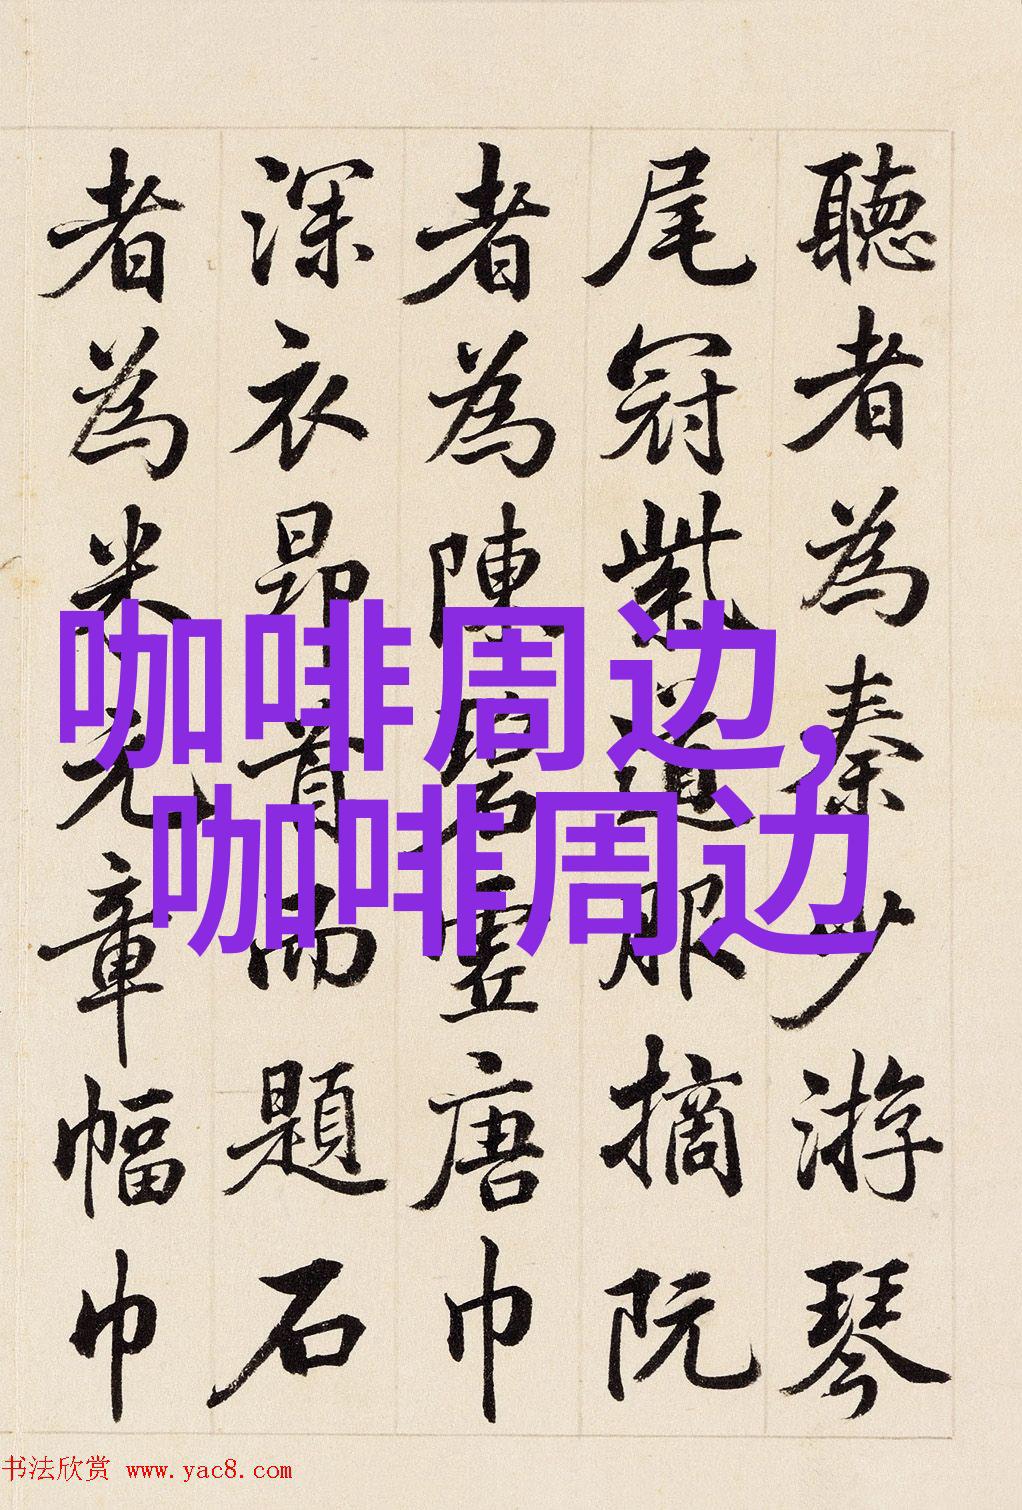 聽者為秦少游琴
尾冠紫道服摘阮
者為陳碧虛唐巾
深衣昂首而題石
者為米元章幅巾
咖啡周边,
咖啡周边
书法欣赏 www.yac8.com